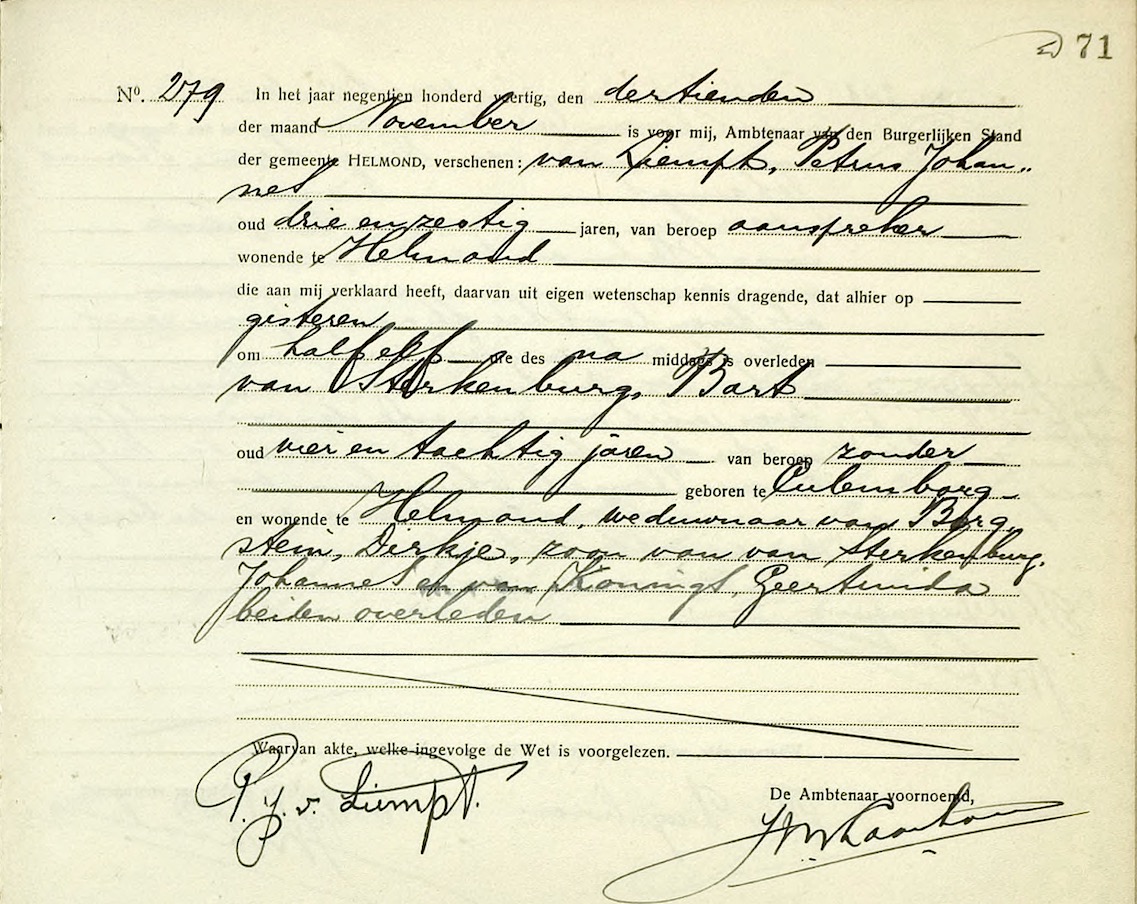 71
Nº. 279 In het jaar negentien honderd veertig, den dertienden
der maand November is voor mij, Ambtenaar van den Burgerlijken Stand
der gemeente HELMOND, verschenen: van Liempt, Petrus Johan„
nes
oud drie en zestig jaren, van beroep aanspreker
wonende te Helmond
die aan mij verklaard heeft, daarvan uit eigen wetenschap kennis dragende, dat alhier op
gisteren
om half elf ure des na middags is overleden
van Sterkenburg, Bart
oud vier en tachtig jaren van beroep zonder
geboren te Culemborg
en wonende te Helmond, weduwnaar van Borg„
stein, Dirkje, zoon van van Sterkenburg,
Johannes en van Konings, Geertruida
beiden overleden
Waarvan akte, welke ingevolge de Wet is voorgelezen.
P. J. v. Liempt.
De Ambtenaar voornoemd,